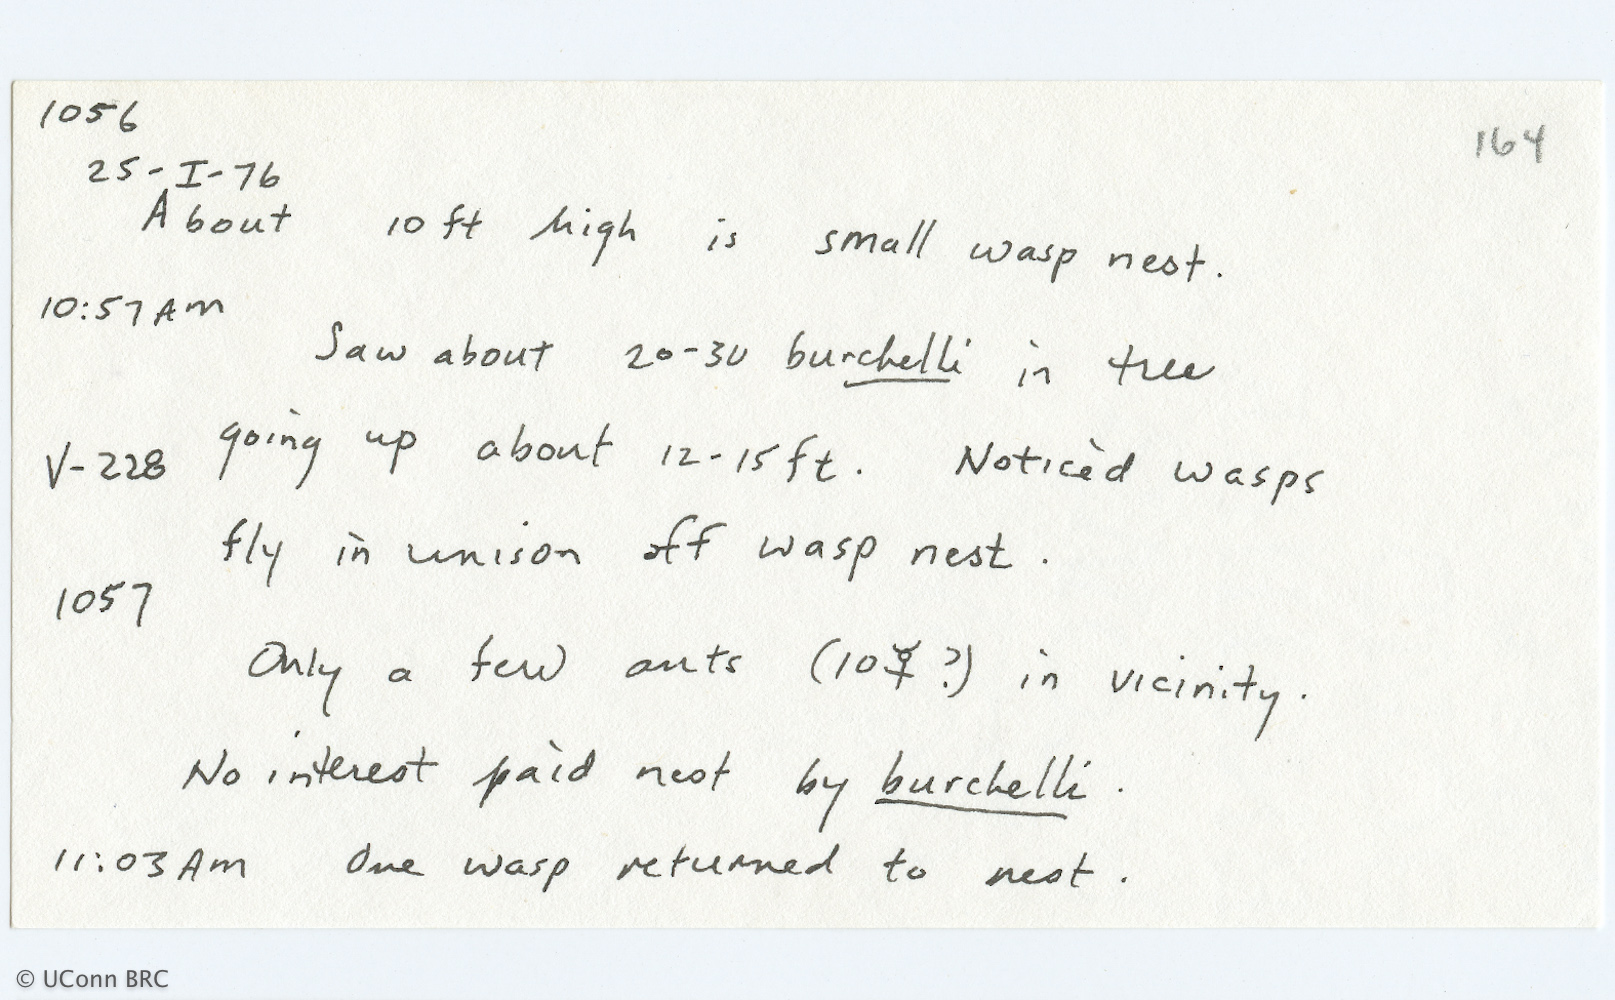 1056
164
25-I-76
About 10 ft high is small wasp nest.
10:57 AM
Saw about 20-30 burchelli in tree
V-228 going up about 12-15 ft. Noticed wasps
fly in unison off wasp nest.
1057
Only a few ants (10 ☿ ?) in vicinity.
No interest paid nest by burchelli.
11:03 AM One wasp returned to nest.
© UConn BRC